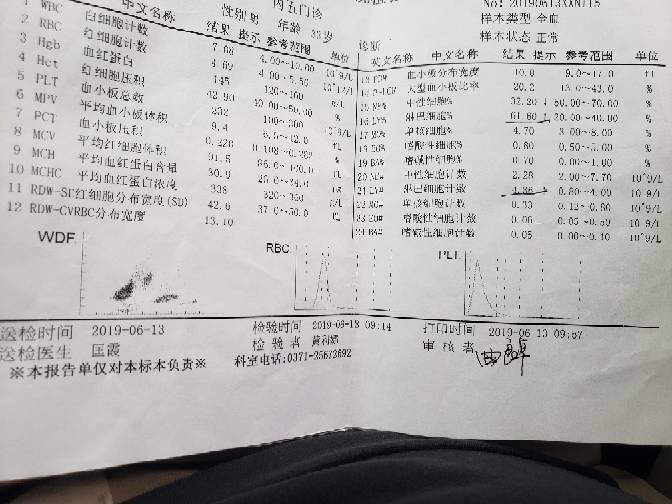 性别 男 内五门诊 No:20190613XAN115
年龄 33岁 样本类型 全血
诊断 样本状态 正常
中文名称 结果 提示 参考范围 单位
英文名称 中文名称 结果 提示 参考范围 单位
1 WBC 白细胞计数 7.08 4.00~10.00 10^9/L
2 RBC 红细胞计数 4.69 10^12/L
3 Hgb 血红蛋白 145 120~160 g/L
4 Hct 红细胞压积 42.90 40.00~50.00 %
5 PLT 血小板总数 232 100~300 10^9/L
6 MPV 平均血小板体积 9.4 fL
7 PCT 血小板压积 %
8 MCV 平均红细胞体积 91.5 fL
9 MCH 平均血红蛋白含量 30.9
10 MCHC 平均血红蛋白浓度 338
11 RDW-SD红细胞分布宽度(SD) 42.6 37.0~50.0
12 RDW-CVRBC分布宽度 13.10
血小板分布宽度 10.0 9.0~17.0 fL
大型血小板比率 20.2 13.0~43.0 %
中性细胞% 32.20 ↓ 50.00~70.00 %
16 LY% 淋巴细胞% 61.60 ↑ 20.00~40.00 %
单核细胞% 4.70 3.00~8.00 %
嗜酸性细胞% 0.50~5.00 %
嗜碱性细胞% 0.70 0.00~1.00 %
中性细胞计数 2.28 2.00~7.70 10^9/L
淋巴细胞计数 0.80~4.00 10^9/L
单核细胞计数 0.33 0.12~0.80 10^9/L
嗜酸性细胞计数 0.06 10^9/L
嗜碱性细胞计数 0.05 0.00~0.10 10^9/L
WDF RBC PLT
送检时间 2019-06-13 检验时间 2019-06-13 09:14 打印时间 2019-06-13 09:57
送检医生 匡霞 检验者 黄利娜 审核者
※本报告单仅对本标本负责※ 科室电话:0371-25673692